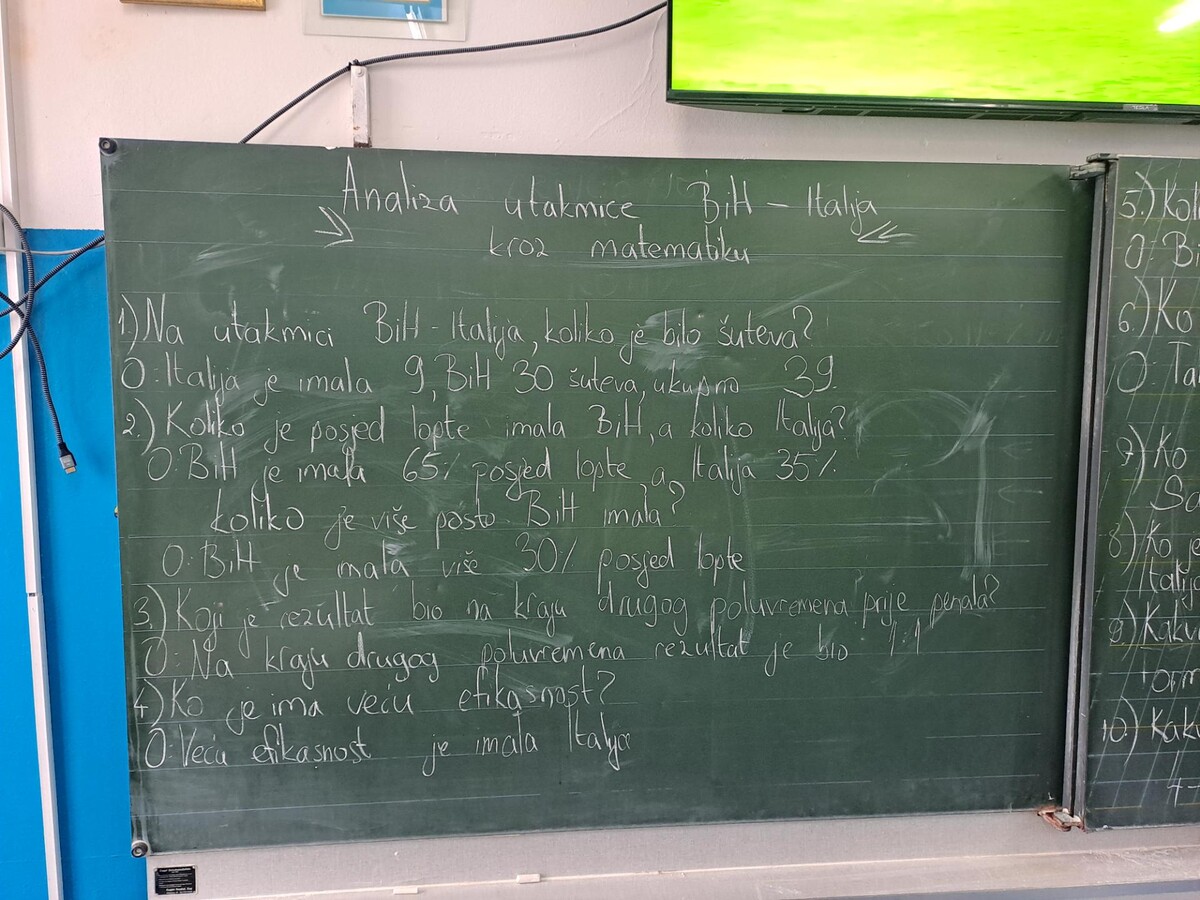 Analiza utakmice BiH - Italija
kroz matematiku
1.) Na utakmici BiH - Italija, koliko je bilo šuteva?
O: Italija je imala 9, BiH 30 šuteva, ukupno 39.
2.) Koliko je posjed lopte imala BiH, a koliko Italija?
O: BiH je imala 65% posjed lopte, a Italija 35%
koliko je više posto BiH imala?
O: BiH je mala više 30% posjed lopte
3.) Koji je rezultat bio na kraju drugog poluvremena prije penala?
O: Na kraju drugog poluvremena rezultat je bio 1:1
4.) Ko je ima veću efikasnost?
O: Veću efikasnost je imala Italija
5.) Kol
O: Bi
6.) Ko
O: Ta
7.) Ko
8.) Ko je
Italij
9.) Kakv
10.) Kakv